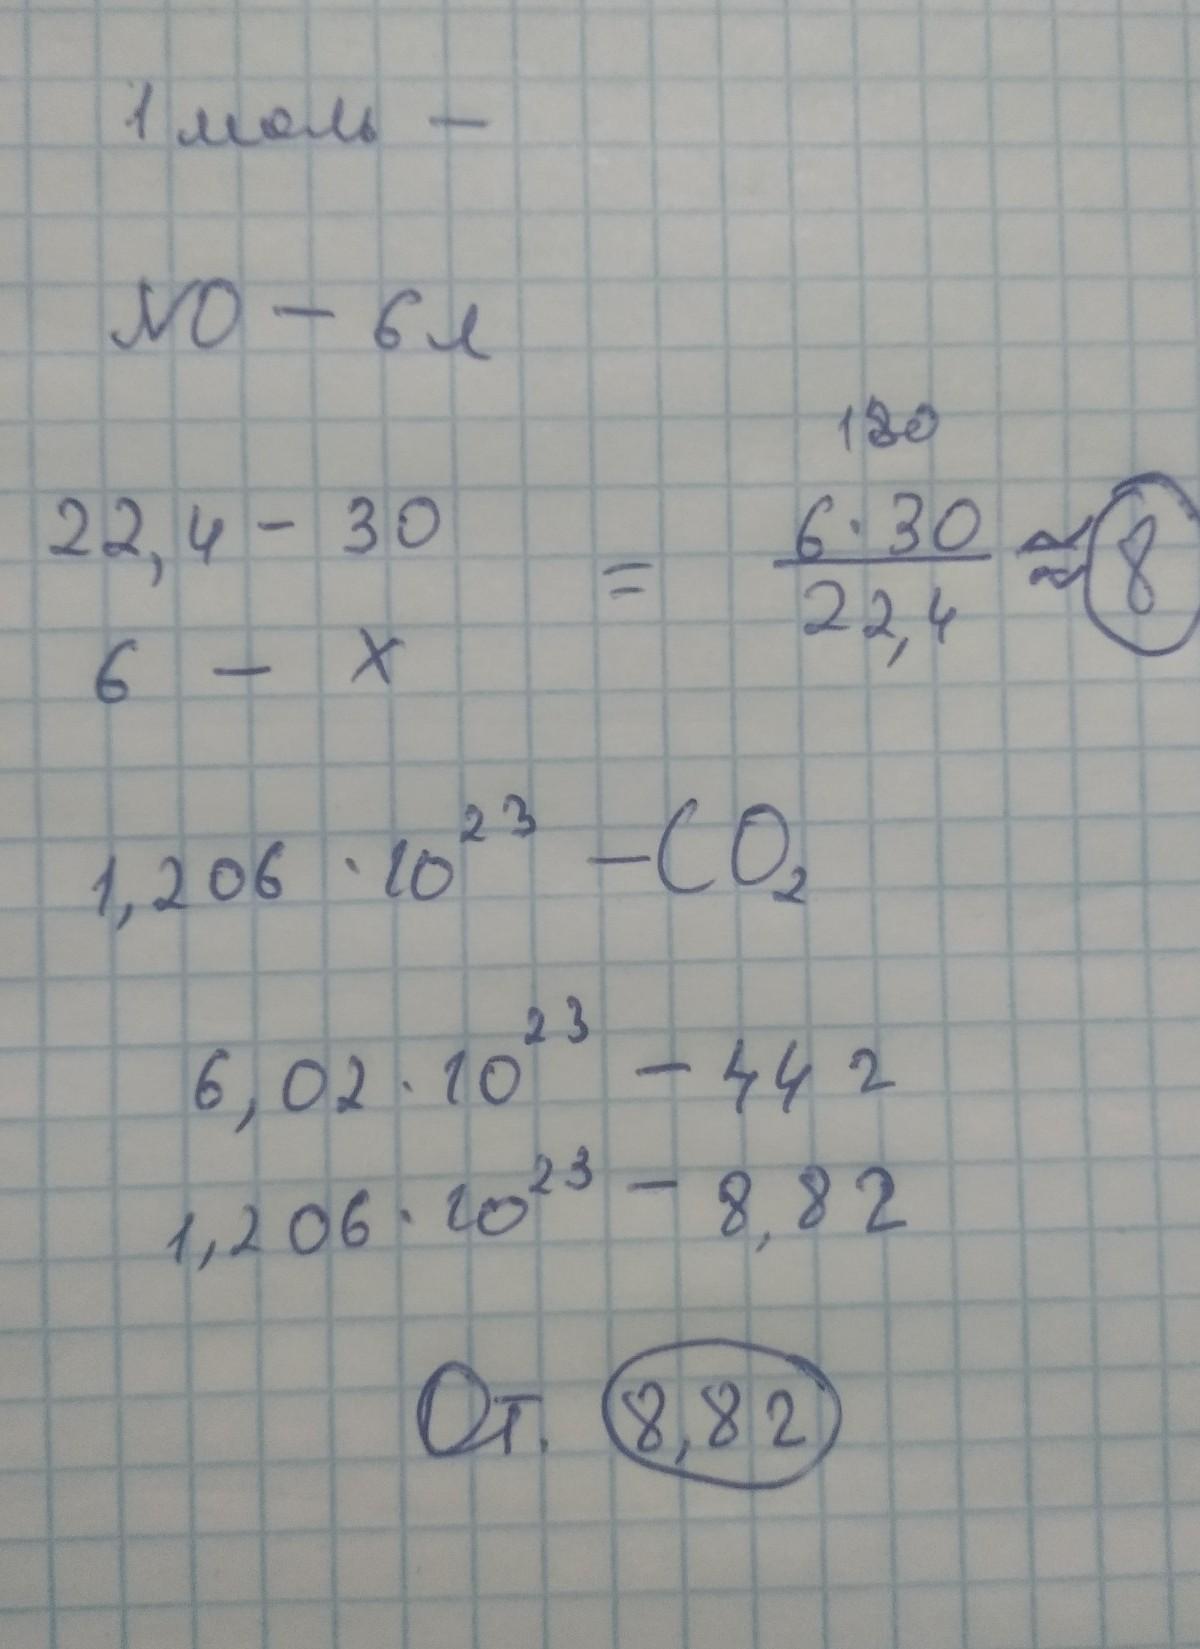 1 моль –
NO – 6 л
180
22,4 – 30 = 6·30 / 22,4 ≈ 8
6 – x
1,206 · 10²³ – CO₂
6,02 · 10²³ – 44 г
1,206 · 10²³ – 8,8 г
От. 8,8 г